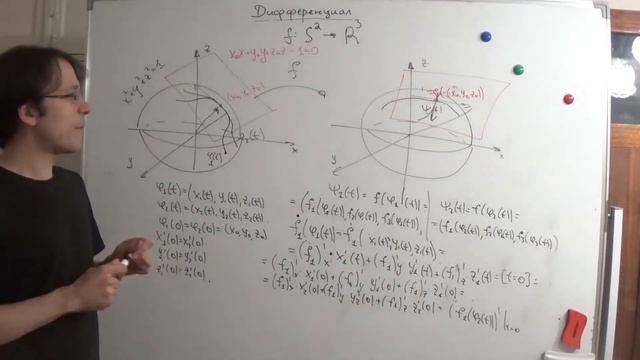 Дифференциал
f: S² → R³
x₀x+y₀y+z₀z-1=0
x²+y²+z²=1
z
f
z
(x₀,y₀,z₀)
f(x₀,y₀,z₀)
φ₂(t)
φ₁(t)
Ψ(t)
x
x
y
y
φ₁(t)=(x₁(t), y₁(t), z₁(t))
φ₂(t)=(x₂(t), y₂(t), z₂(t))
φ₁(0)=φ₂(0)=(x₀,y₀,z₀)
x₁'(0)=x₂'(0)
y₁'(0)=y₂'(0)
z₁'(0)=z₂'(0)
Ψ₁(t)=f(φ₁(t))=
=(f₁(φ₁(t)), f₂(φ₁(t)), f₃(φ₁(t)))
Ψ₂(t)=f(φ₂(t))=
=(f₁(φ₂(t)), f₂(φ₂(t)), f₃(φ₂(t)))
=(f₁)'ₓ x₁'(t)+(f₁)'y y₁'(t)+(f₁)'z z₁'(t)=[t=0]=
=(f₁)'ₓ x₁'(0)+(f₁)'y y₁'(0)+(f₁)'z z₁'(0)=
=(f₁)'ₓ x₂'(0)+(f₁)'y y₂'(0)+(f₁)'z z₂'(0)=(f₁(φ₂(t)))'|t=0